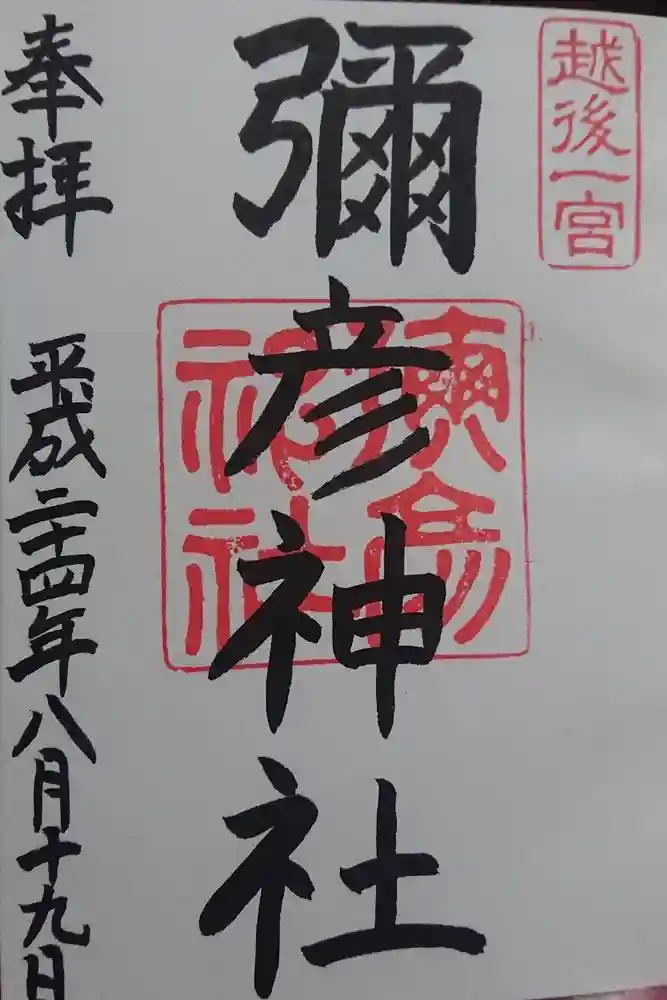 越後一宮
彌彦神社
彌彦神社
奉拝
平成二十四年八月十九日